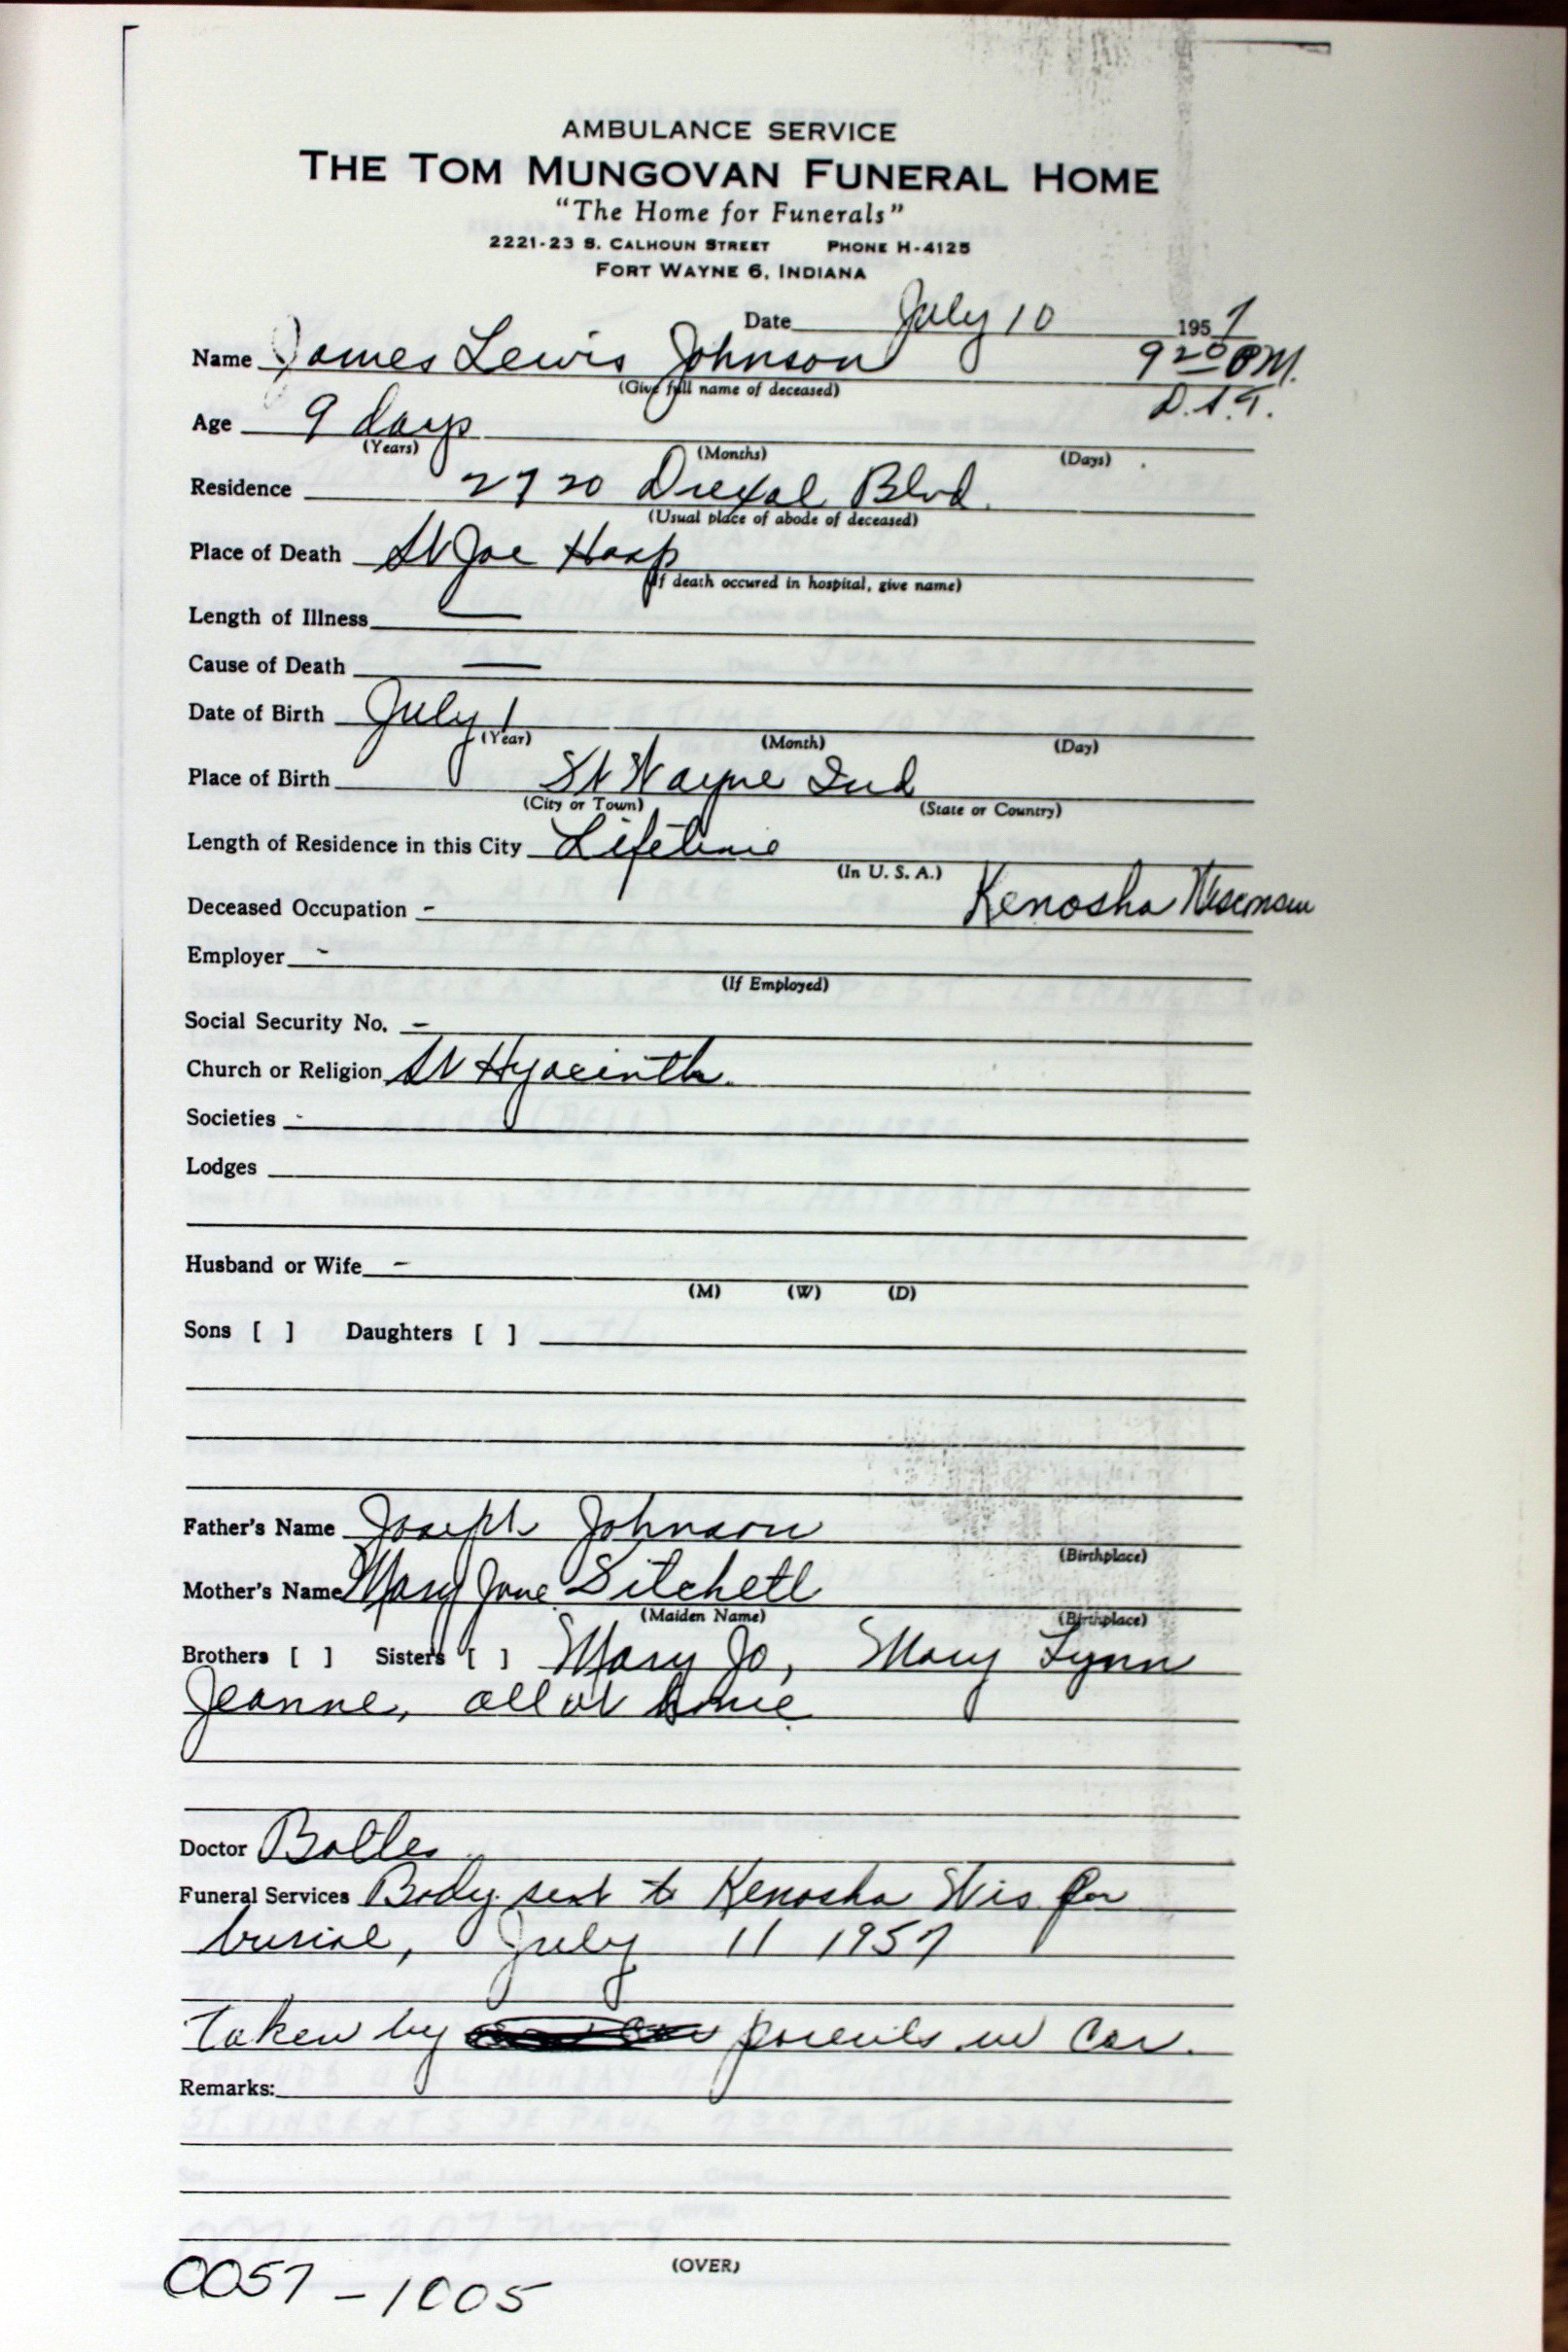 AMBULANCE SERVICE
THE TOM MUNGOVAN FUNERAL HOME
"The Home for Funerals"
2221-23 S. CALHOUN STREET PHONE H-4125
FORT WAYNE 6, INDIANA
Date July 10 1957
Name James Lewis Johnson 9 20 PM.
(Give full name of deceased)
D.S.T.
Age 9 days
(Years) (Months) (Days)
Residence 2720 Drexal Blvd.
(Usual place of abode of deceased)
Place of Death St Joe Hosp
(If death occured in hospital, give name)
Length of Illness —
Cause of Death —
Date of Birth July 1
(Year) (Month) (Day)
Place of Birth Ft Wayne Ind
(City or Town) (State or Country)
Length of Residence in this City Lifetime
(In U. S. A.)
Deceased Occupation - Kenosha
Employer -
(If Employed)
Social Security No. -
Church or Religion St Hyacinth.
Societies -
Lodges
Husband or Wife -
(M) (W) (D)
Sons [ ] Daughters [ ]
Father's Name Joseph Johnson
(Birthplace)
Mother's Name Mary Jane
(Maiden Name) (Birthplace)
Brothers [ ] Sisters [ ] Mary Jo, Mary Lynn
Jeanne, all at home.
Doctor
Funeral Services Body sent to Kenosha Wis for
burial, July 11 1957
Taken by parents in car.
Remarks:
(OVER)
0057-1005